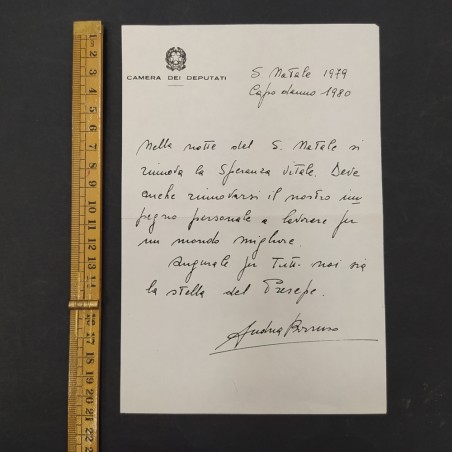 CAMERA DEI DEPUTATI
S. Natale 1979
Capodanno 1980
Nella notte del S. Natale si
rinnova la Speranza vitale. Deve
anche rinnovarsi il nostro im
pegno personale a lavorare per
un mondo migliore.
Augurale per Tutti noi sia
la stella del Presepe.
Andrea Borruso
1
2
3
4
5
6
7
8
9
10
11
12
13
14
15
16
17
18
19
20
21
22